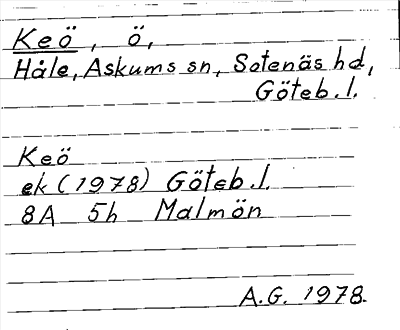 Keö, ö,
Håle, Askums sn, Sotenäs hd,
Göteb. l.
Keö
ek (1978) Göteb. l.
8A 5h Malmön
A.G. 1978.